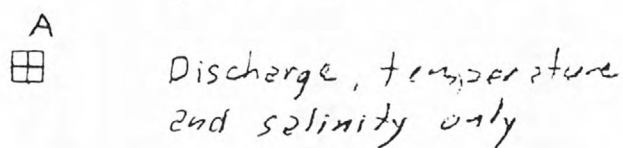 A
Discharge, temperature
and salinity only